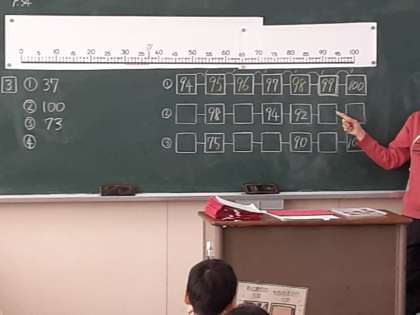 P.34
0 5 10 15 20 25 30 35 40 45 50 55 60 65 70 75 80 85 90 95 100
3 ① 37
② 100
③ 73
④
① 94 95 96 97 98 99 100
② 98 94 92
③ 75 90